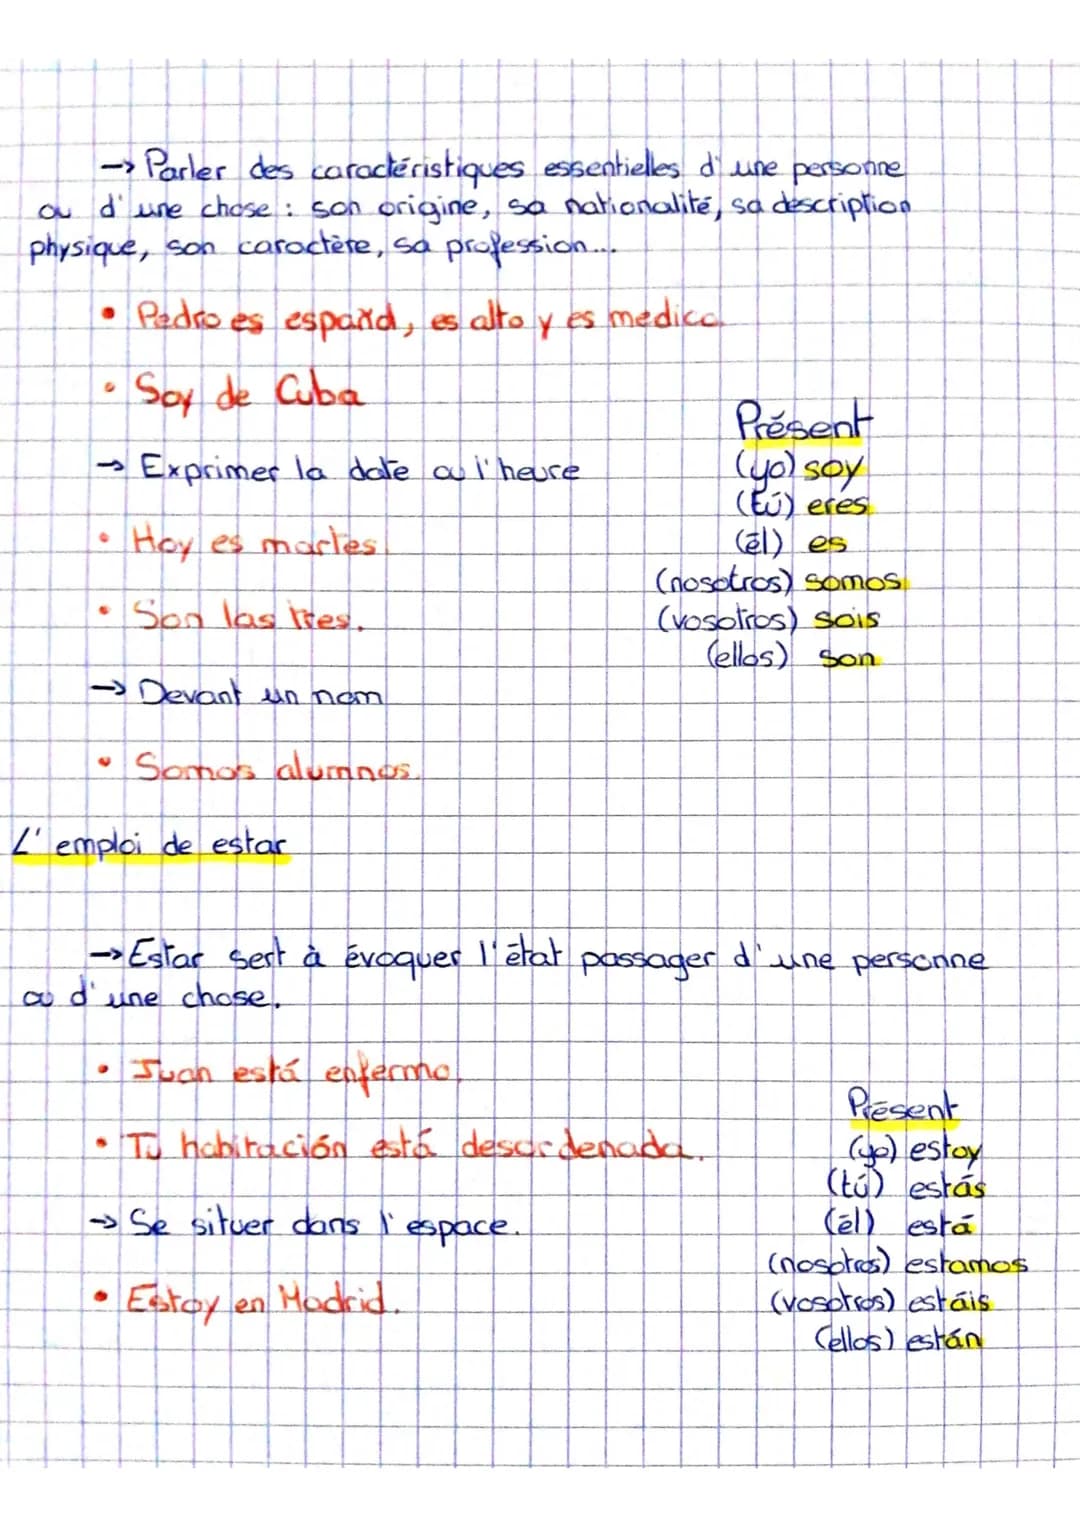 → Parler des caractéristiques essentielles d'une personne
ou d'une chose : son origine, sa nationalité, sa description
physique, son caractère, sa profession...
• Pedro es español, es alto y es medico.
• Soy de Cuba
→ Exprimer la date ou l'heure
• Hoy es martes.
• Son las tres.
→ Devant un nom
• Somos alumnos.
Présent
(yo) soy
(tú) eres
(él) es
(nosotros) somos
(vosotros) sois
(ellos) son
L'emploi de estar
→ Estar sert à évoquer l'état passager d'une personne
ou d'une chose.
• Juan está enfermo.
• Tu habitación está desordenada.
→ Se situer dans l'espace.
• Estoy en Madrid.
Présent
(yo) estoy
(tú) estás
(él) está
(nosotros) estamos
(vosotros) estáis
(ellos) están